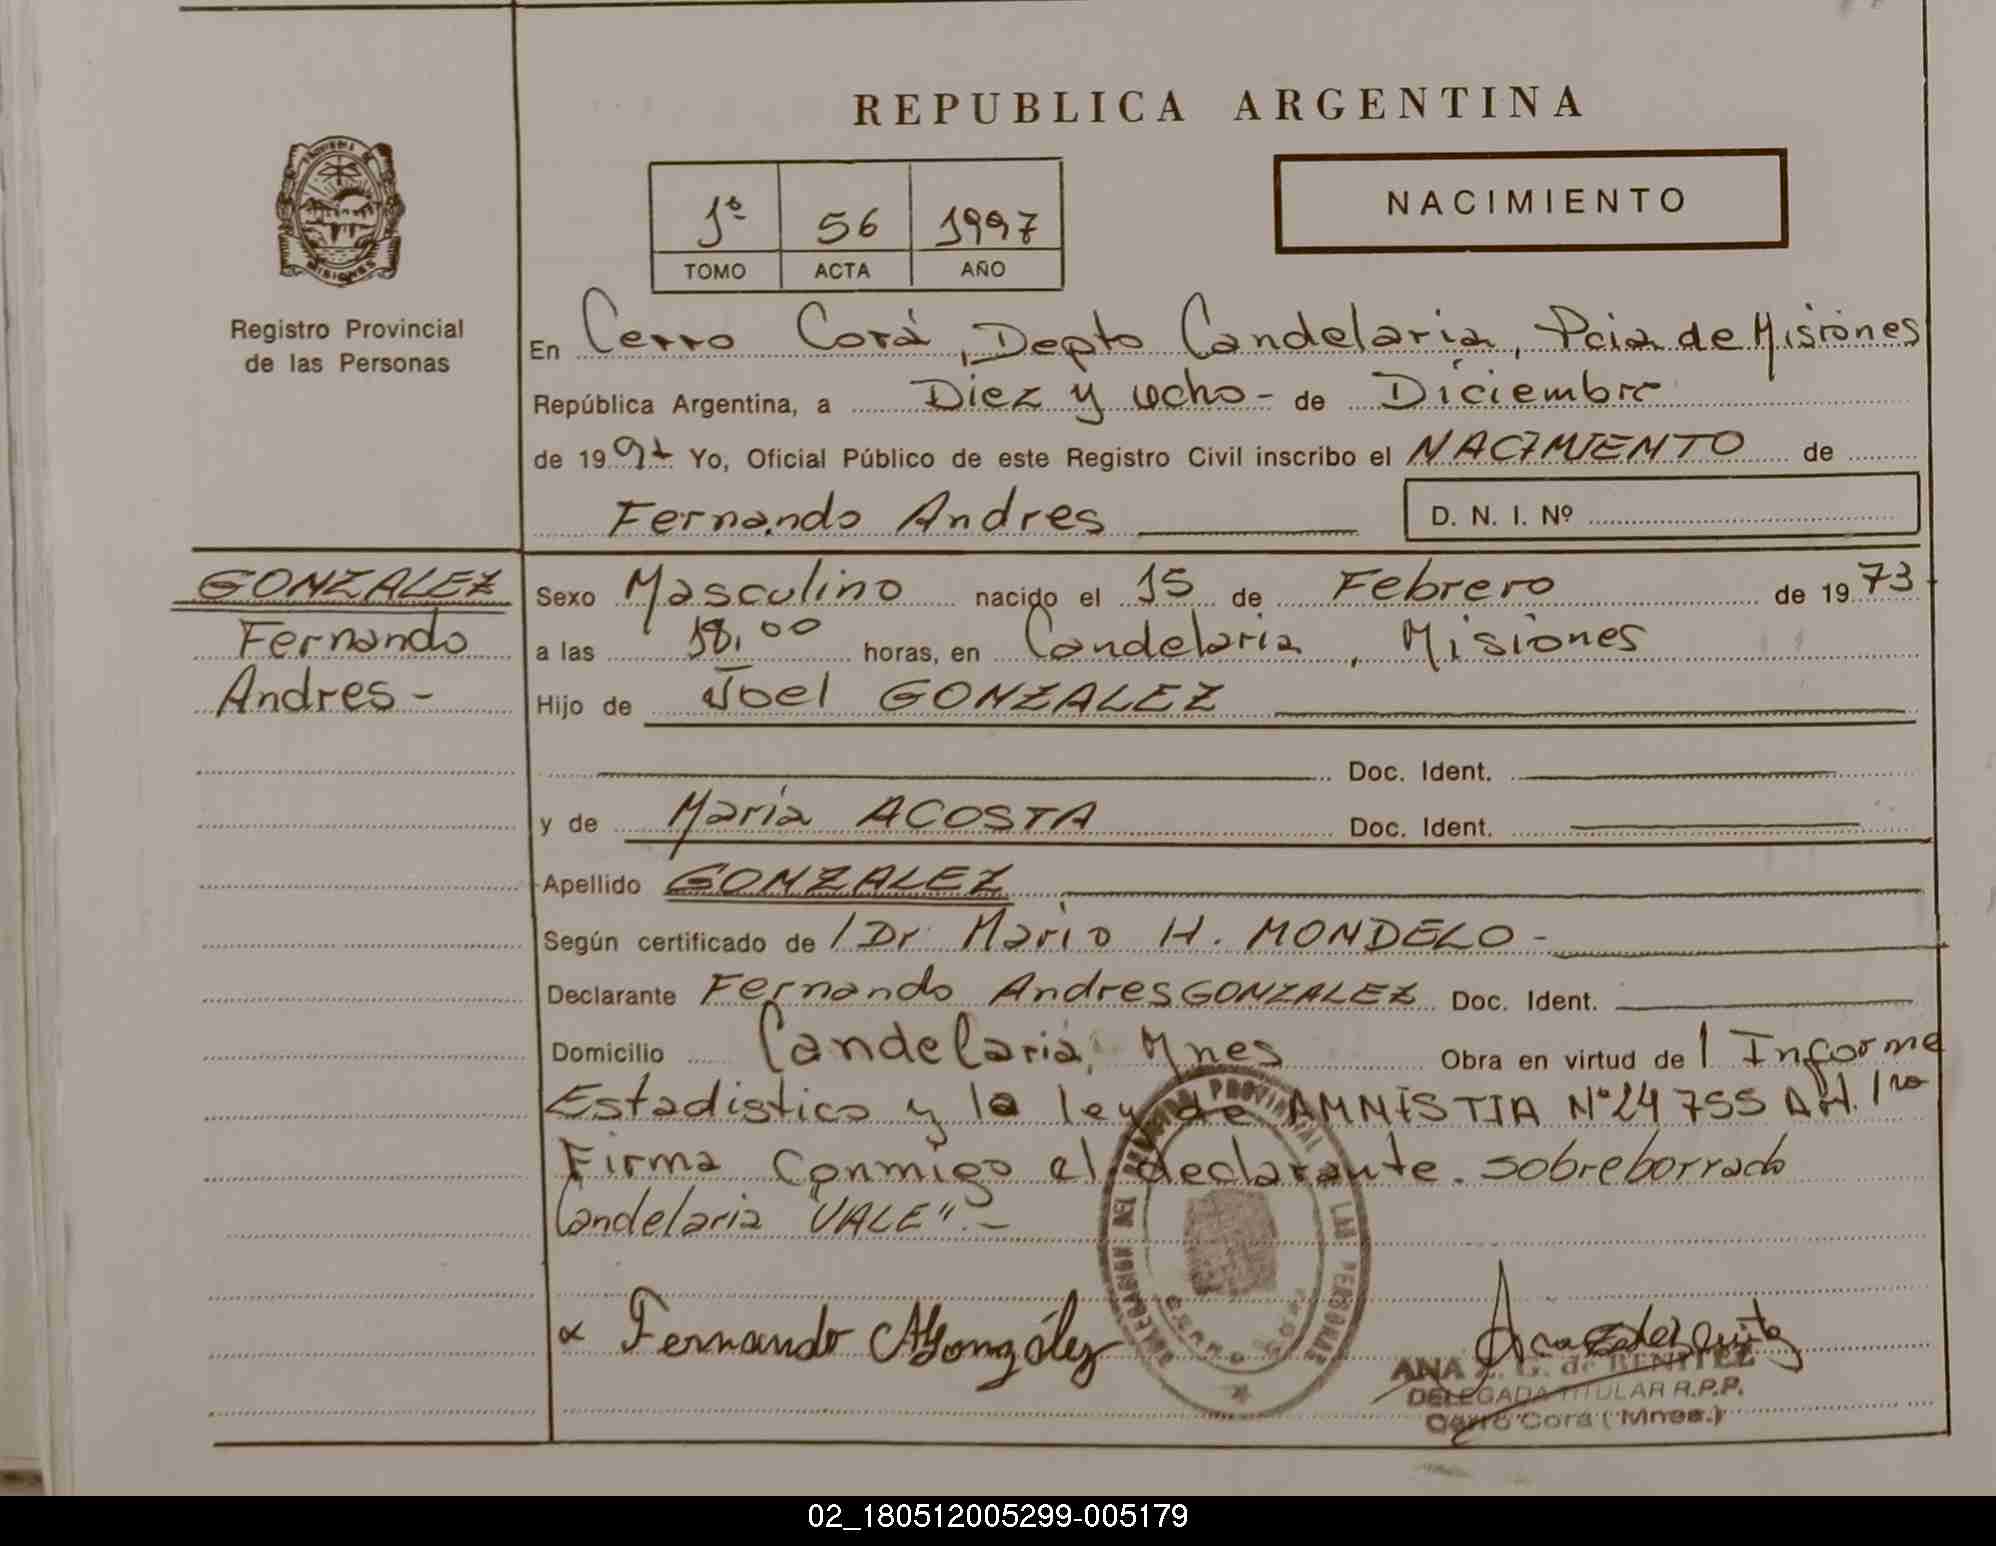 REPUBLICA ARGENTINA
PROVINCIA DE
MISIONES
Registro Provincial
de las Personas
1º 56 1997
TOMO ACTA AÑO
NACIMIENTO
En Cerro Corá, Depto Candelaria, Pcia de Misiones
República Argentina, a Diez y ocho - de Diciembre
de 1997 Yo, Oficial Público de este Registro Civil inscribo el NACIMIENTO de
Fernando Andres
D. N. I. Nº
GONZALEZ
Fernando
Andres -
Sexo Masculino nacido el 15 de Febrero de 1973
a las 18,00 horas, en Candelaria, Misiones
Hijo de Joel GONZALEZ
Doc. Ident.
y de María ACOSTA Doc. Ident.
Apellido GONZALEZ
Según certificado de / Dr Mario H. MONDELO -
Declarante Fernando Andres GONZALEZ Doc. Ident.
Domicilio Candelaria, Mnes Obra en virtud de 1 Informe
Estadistico y la ley de AMNISTIA Nº 24755 Art. 1ro
Firma conmigo el declarante. sobreborrado
Candelaria "VALE". -
Fernando A González
DELEGACION DEL REGISTRO PROVINCIAL DE LAS PERSONAS
CERRO CORA
ANA E. G. de BENITEZ
DELEGADA TITULAR R.P.P.
Cerro Corá (Mnes.)
02_180512005299-005179